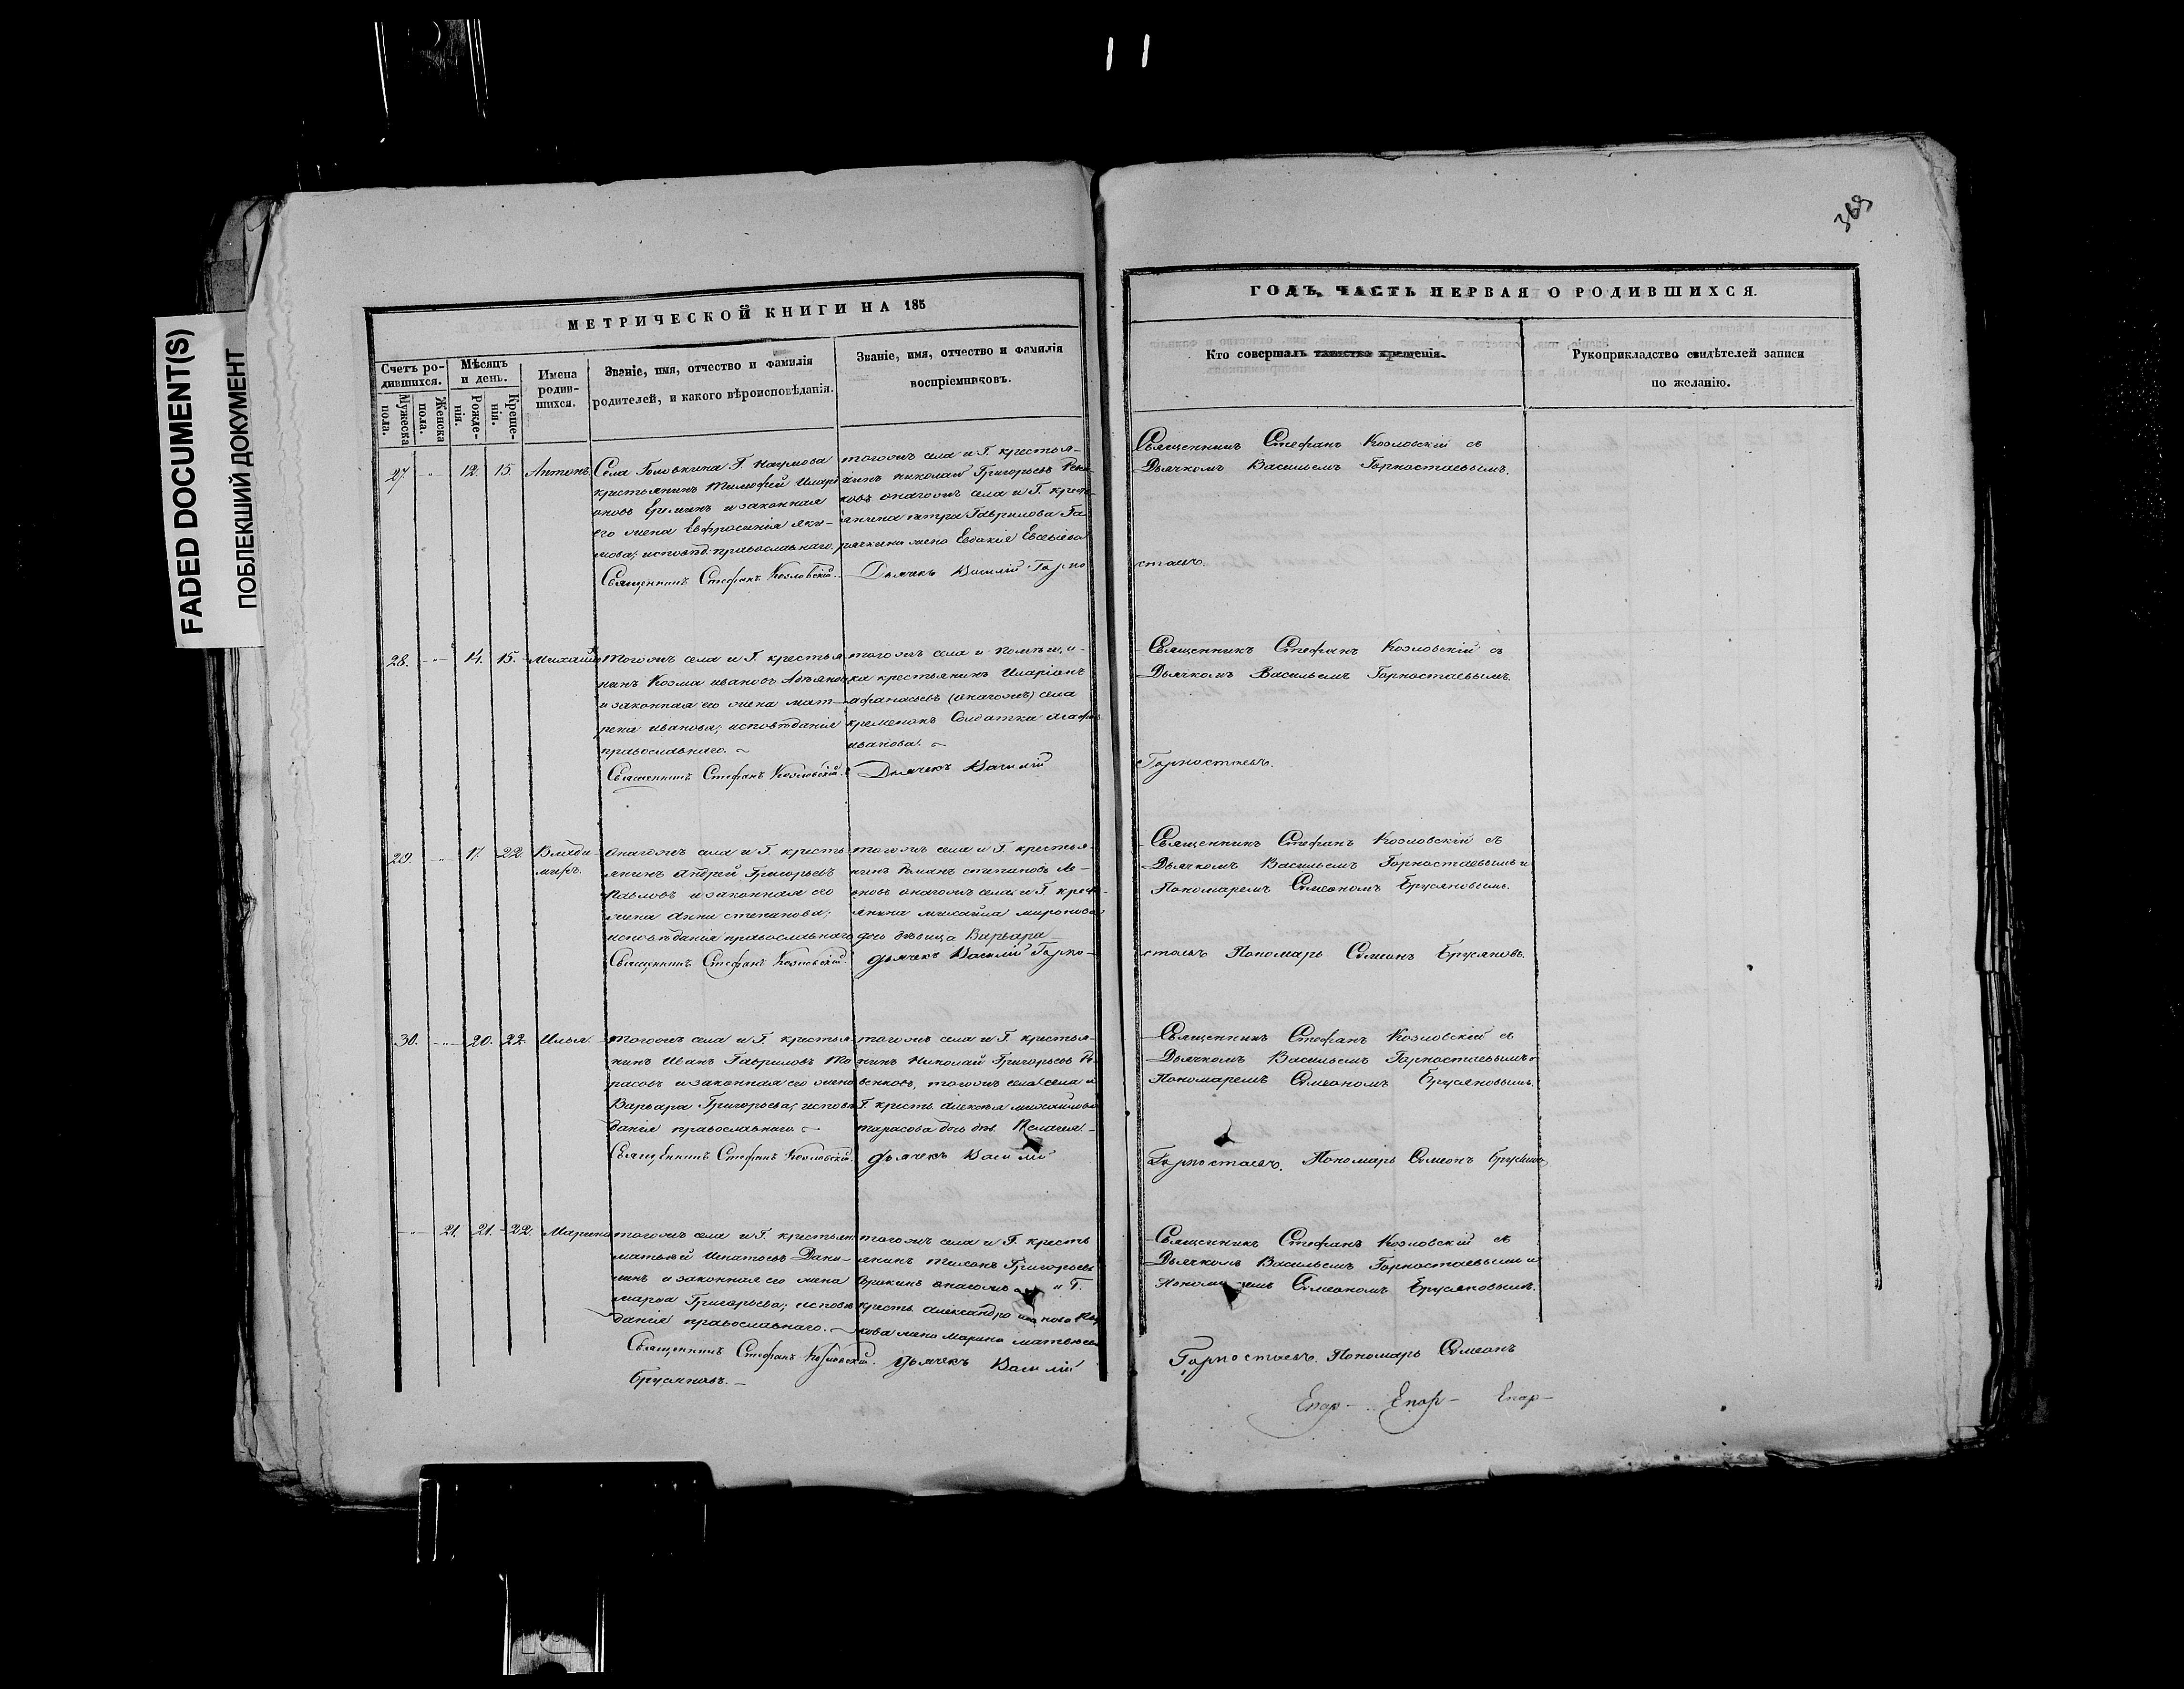 FADED DOCUMENT(S)
ПОБЛЕКШИЙ ДОКУМЕНТ
369
МЕТРИЧЕСКОЙ КНИГИ НА 185
Счетъ ро-
дившихся.
Мужеска
пола.
Женска
пола.
Мѣсяцъ
и день.
Рожде-
нія.
Креще-
нія.
Имена
родив-
шихся.
Званіе, имя, отчество и фамилія
родителей, и какого вѣроисповѣданія.
Званіе, имя, отчество и фамилія
воспріемниковъ.
27. 12. 15. Антонъ.
Села Головкина Г. Наумова
крестьянинъ Тимофей Илари
оновъ Ереминъ и законная
его жена Евфросинія Яки-
мова; исповѣд. православнаго.
Священникъ Стефанъ Козловскій.
тогожъ села и Г. крестья-
нинъ Николай Григорьевъ
ковъ онагожъ села и Г. кресть-
янина Петра Гаврилова Га
рячкина жена Евдокія
Дьячекъ Василій Горно
28. 14. 15. Михаилъ
Тогожъ села и Г. крестья
нинъ Козма Ивановъ
и законная его жена Мат-
рена Иванова; исповѣданія
православнаго.
Священникъ Стефанъ Козловскій.
тогожъ села и помѣщи-
ка крестьянинъ Иларіонъ
Афанасьевъ (онагожъ) села
Кременокъ Солдатка
Иванова.
Дьячекъ Василій
29. 17. 22. Влади-
миръ.
Онагожъ села и Г. кресть
янинъ Андрей Григорьевъ
Павловъ и законная его
жена Анна Степанова;
исповѣданія православнаго
Священникъ Стефанъ Козловскій.
тогожъ села и Г. крестья-
нинъ Романъ Степановъ Ле-
оновъ онагожъ села и Г. кресть-
янина Михаила Миронова
дочь дѣвица Варвара
дьячекъ Василій Горно-
30. 20. 22. Илья.
Тогожъ села и Г. крестья
нинъ Иванъ Гавриловъ Та
расовъ и законная его жена
Варвара Григорьева; исповѣ
данія православнаго
Священникъ Стефанъ Козловскій.
тогожъ села и Г. крестья-
нинъ Николай Григорьевъ
тогожъ села и
Г. кресть. Алексѣя Михайлова
Тарасова дочь дѣв. Пелагея.
дьячекъ Василій
21. 21. 22. Марина
тогожъ села и Г. крестьян.
Матвѣй Игнатьевъ Дани-
линъ и законная его жена
Марѳа Григорьева; исповѣ
данія православнаго.
Священникъ Стефанъ Козловскій.
Брусяновъ.
тогожъ села и Г. кресть
янинъ Тихонъ Григорьевъ
онагожъ Г.
кресть. Александра
кова жена Марина Матвѣева
дьячекъ Василій
ГОДЪ, ЧАСТЬ ПЕРВАЯ О РОДИВШИХСЯ.
Кто совершалъ таинство крещенія.
Рукоприкладство свидѣтелей записи
по желанію.
Священникъ Стефанъ Козловскій съ
Дьячкомъ Васильемъ Горностаевымъ.
стаевъ.
Священникъ Стефанъ Козловскій съ
Дьячкомъ Васильемъ Горностаевымъ.
Горностаевъ.
Священникъ Стефанъ Козловскій съ
Дьячкомъ Васильемъ Горностаевымъ и
Пономаремъ Симеономъ Брусяновымъ.
стаевъ Пономарь Симеонъ Брусяновъ.
Священникъ Стефанъ Козловскій съ
Дьячкомъ Васильемъ Горностаевымъ и
Пономаремъ Симеономъ Брусяновымъ.
Горностаевъ. Пономарь Симеонъ Брусяновъ
Священникъ Стефанъ Козловскій съ
Дьячкомъ Васильемъ Горностаевымъ и
Симеономъ Брусяновымъ.
Горностаевъ. Пономарь Симеонъ
Епар- Епар- Епар-